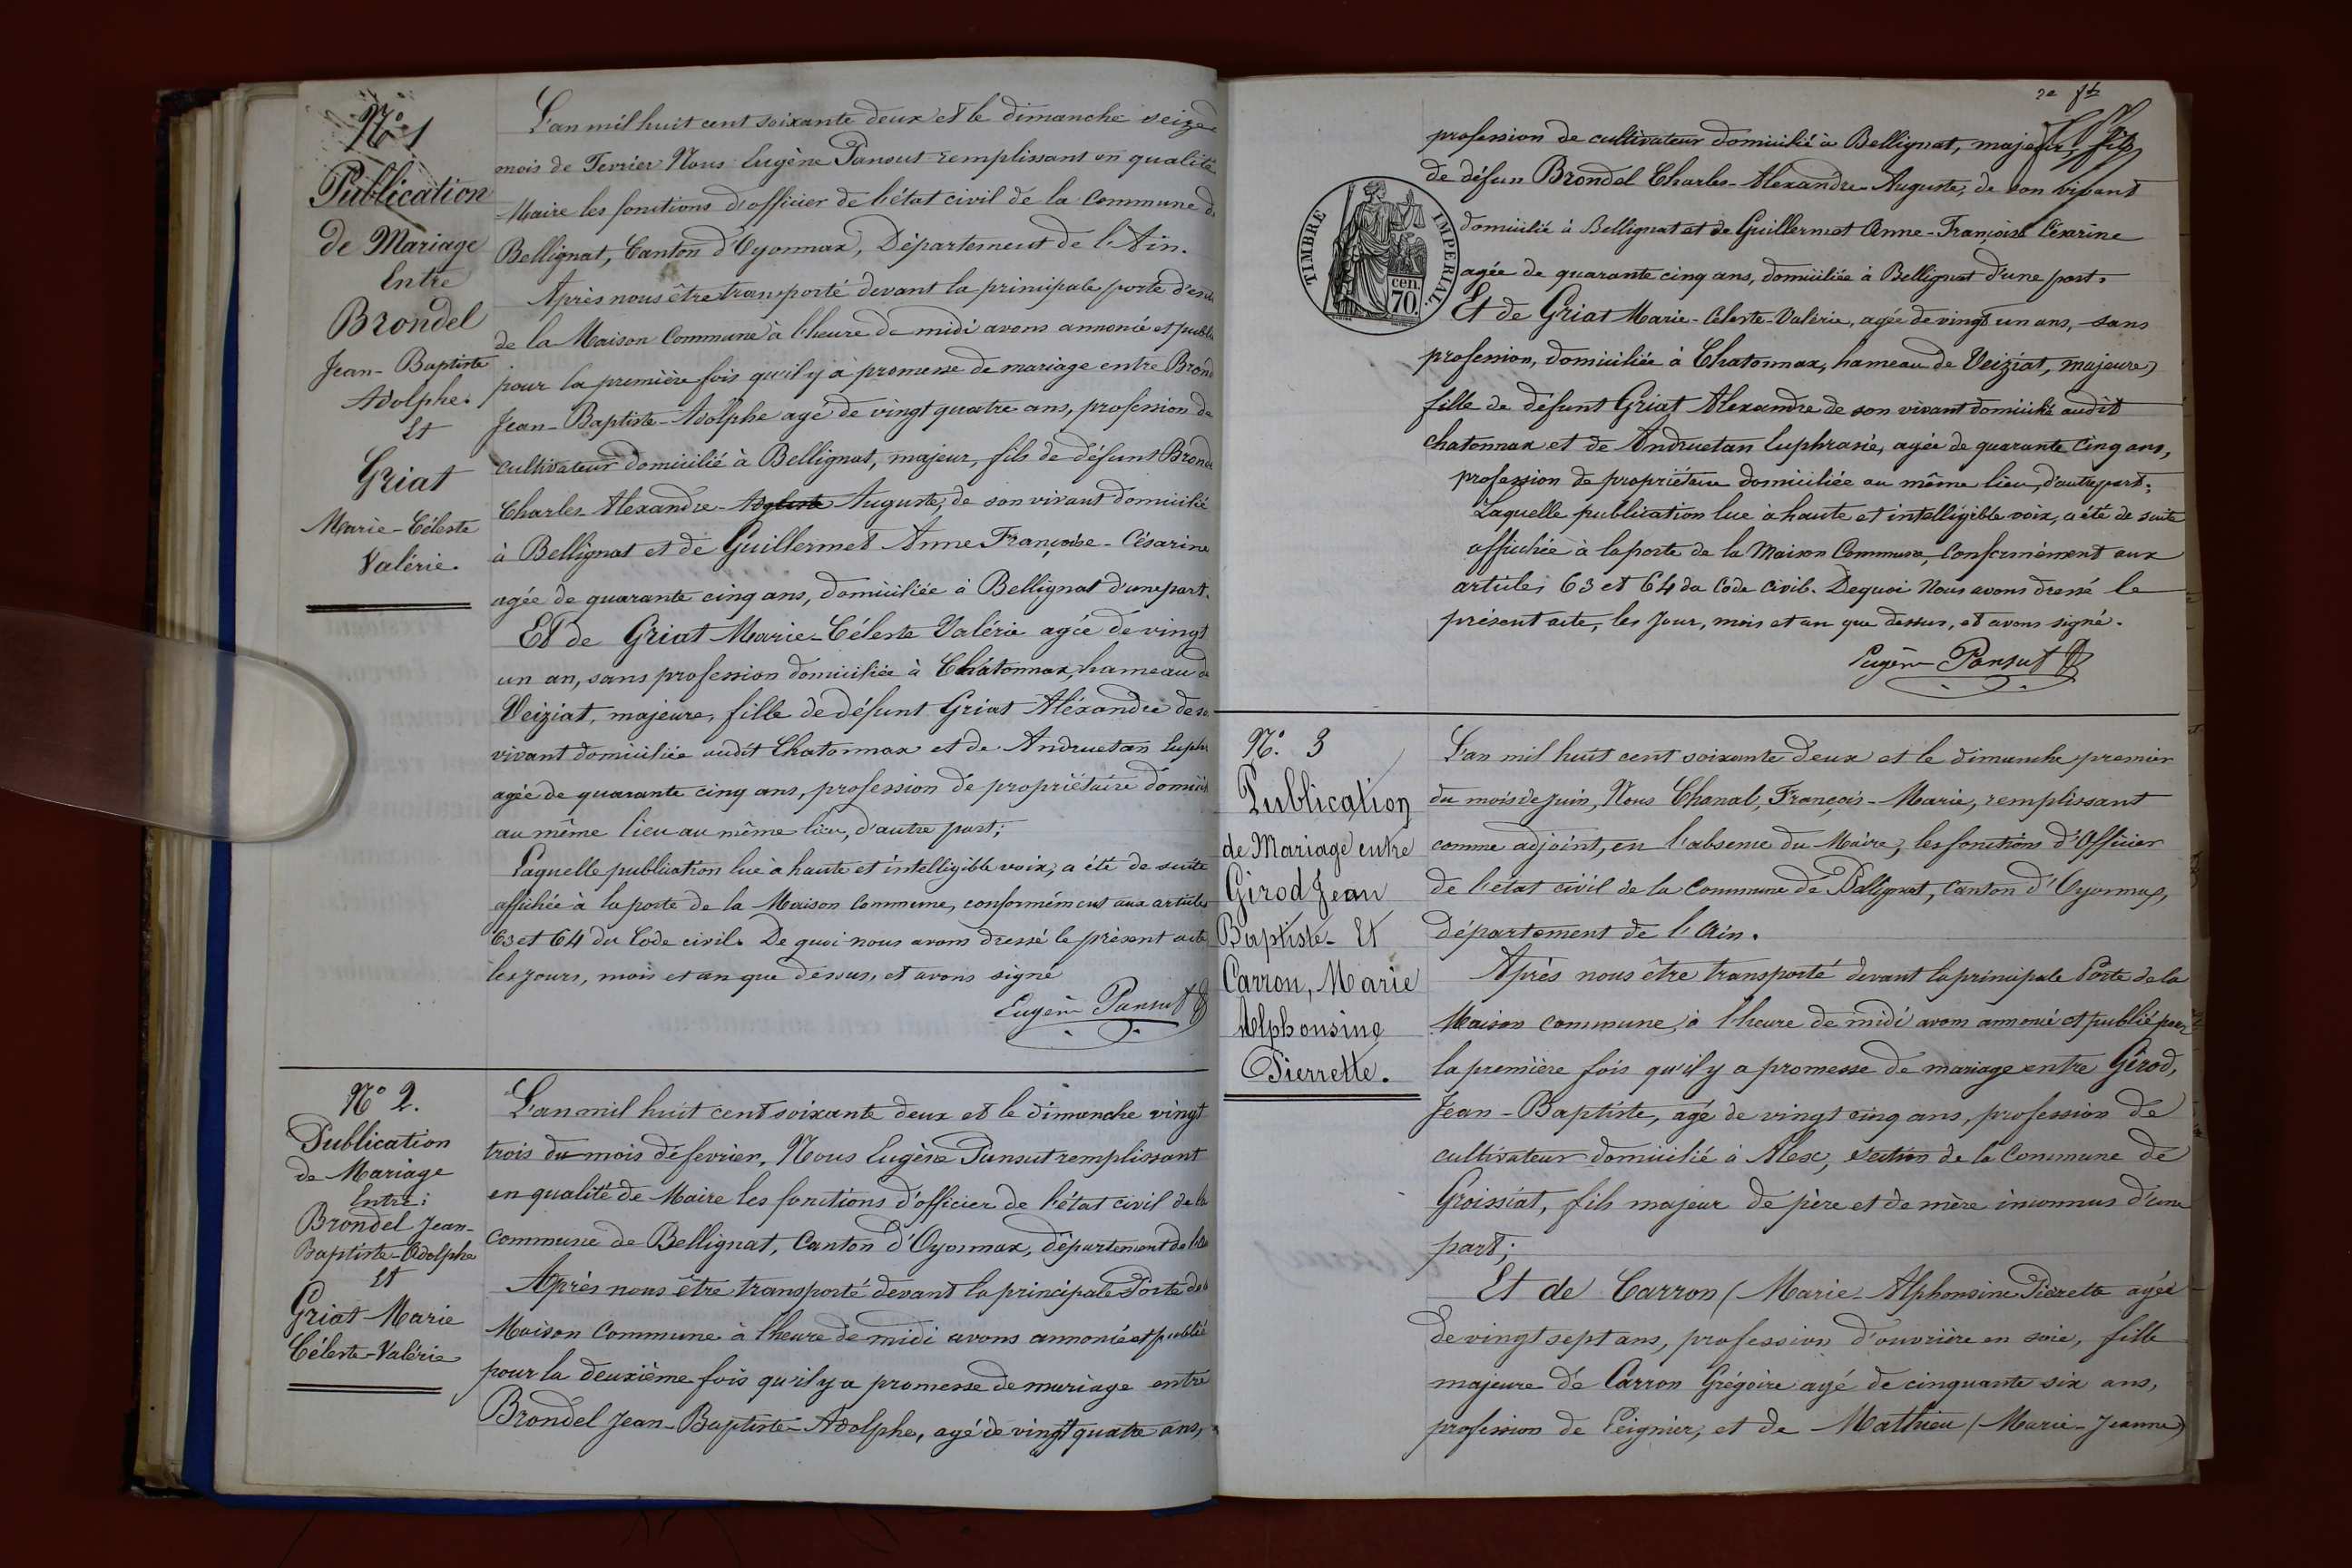 N° 1
Publication
de Mariage
Entre
Brondel
Jean-Baptiste
Adolphe.
Et
Griat
Marie-Céleste
Valérie.
L'an mil huit cent soixante deux et le dimanche seize
mois de Fevrier Nous Eugène Pansut remplissant en qualité
Maire les fonctions d'officier de l'état civil de la Commune de
Bellignat, Canton d'Oyonnax, Département de l'Ain.
Après nous être transporté devant la principale porte d'
de la Maison Commune à l'heure de midi avons annoncé et publi
pour la première fois qu'il y a promesse de mariage entre Brond
Jean-Baptiste-Adolphe agé de vingt quatre ans, profession de
cultivateur domicilié à Bellignat, majeur, fils de défunt Bronde
Charles-Alexandre- Auguste, de son vivant domicilié
à Bellignat et de Guillermet Anne Françoise-Césarine
agée de quarante cinq ans, domiciliée à Bellignat d'une part.
Et de Griat Marie-Céleste Valérie agée de vingt
un an, sans profession domiciliée à Châtonnax, hameau de
Veiziat, majeure, fille de défunt Griat Aléxandre de so
vivant domiciliée audit Chatonnax et de Andruetan Euph
agée de quarante cinq ans, profession de propriétaire domicil
au même lieu au même lieu, d'autre part;
Laquelle publication lue à haute et intelligible voix, a été de suite
affichée à la porte de la Maison Commune, conformément aux articles
63 et 64 du Code civil. De quoi nous avons dressé le présent acte
les jours, mois et an que dessus, et avons signé
Eugène Pansut
N° 2.
Publication
de Mariage
Entre:
Brondel Jean-
Baptiste-Adolphe
Et
Griat Marie
Céleste-Valérie
L'an mil huit cent soixante deux et le dimanche vingt
trois du mois dé fevrier, Nous Eugène Pansut remplissant
en qualité de Maire les fonctions d'officier de l'état civil de la
commune de Bellignat, Canton d'Oyonnax, département de l'
Après nous être transporté devant la principale Porte de
Maison Commune à l'heure de midi avons annoncé et publié
pour la deuxième fois qu'il y a promesse de mariage entre
Brondel Jean-Baptiste-Adolphe, agé de vingt quatre ans,
profession de cultivateur domicilié à Bellignat, majeur, fils
de défun Brondel Charles-Alexandre-Auguste, de son vivant
domicilié à Bellignat et de Guillermet Anne-Françoise Césarine
agée de quarante cinq ans, domiciliée à Bellignat d'une part.
TIMBRE IMPÉRIAL.
cen.
70.
Et de Griat Marie-Céleste-Valérie, agée de vingt un ans, sans
profession, domiciliée à Chatonnax, hameau de Veiziat, majeure,
fille de défunt Griat Alexandre de son vivant domicilié audit
chatonnax et de Andruetan Euphrasie, agée de quarante cinq ans,
profession de propriétaire domiciliée au même lieu, d'autre part.
Laquelle publication lue à haute et intelligible voix, a été de suite
affichée à la porte de la Maison Commune, Conformément aux
articles 63 et 64 du Code Civil. De quoi Nous avons dressé le
présent acte, les Jour, mois et an que dessus, et avons signé.
Eugène Pansut
N° 3
Publication
de Mariage entre
Girod Jean
Baptiste- Et
Carron, Marie
Alphonsine
Pierrette.
L'an mil huit cent soixante deux et le dimanche premier
du mois de juin, Nous Chanal, François-Marie, remplissant
comme adjoint, en l'absence du Maire, les fonctions d'Officier
de l'état civil de la Commune de Bellignat, Canton d'Oyonnax,
département de l'Ain.
Après nous être transporté devant la principale Porte de la
Maison commune, à l'heure de midi avons annoncé et publié pour
la première fois qu'il y a promesse de mariage entre Girod,
Jean-Baptiste, agé de vingt cinq ans, profession de
cultivateur domicilié à Alex, section de la Commune de
Groissiat, fils majeur de père et de mère inconnus d'une
part;
Et de Carron (Marie-Alphonsine Pierette agée
de vingt sept ans, profession d'ouvrière en soie, fille
majeure de Carron Grégoire agé de cinquante six ans,
profession de Peignier, et de Mathieu (Marie-Jeanne)